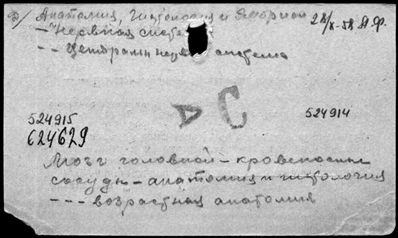 Анатомия, Гистология и Эмбриол 28/X-58 Я.Ф.
- Нервная систе
- - Центральн нервн система
С
524915 524914
624629
Мозг головной - кровеносные
сосуды - анатомия и гистология
- - - возрастная анатомия